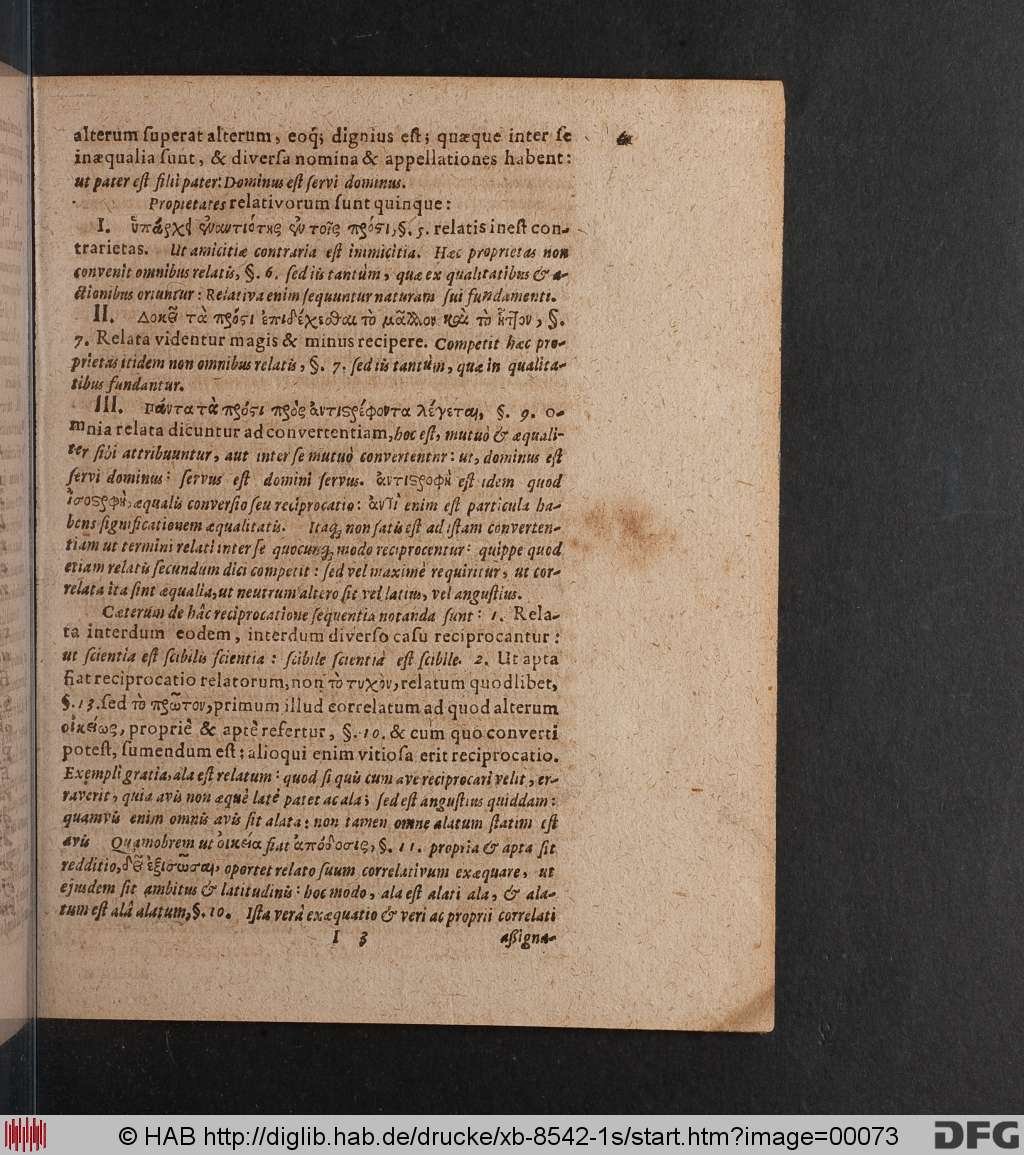 alterum ſuperat alterum, eoq́; dignius eſt; quæque inter ſe
inæqualia ſunt, & diverſa nomina & appellationes habent:
ut pater eſt filii pater: Dominus eſt ſervi dominus.
Propietates relativorum ſunt quinque:
I. ὑπάρχει ἐναντιότης ἐν τοῖς πρόςτι, §. 5. relatis ineſt con-
trarietas. Ut amicitiæ contraria eſt inimicitia. Hæc proprietas non
convenit omnibus relatis, §. 6. ſed iis tantùm, quæ ex qualitatibus & a-
ctionibus oriuntur: Relativa enim ſequuntur naturam ſui fundamenti.
II. Δοκεῖ τὰ πρόςτι ἐπιδέχεσθαι τὸ μᾶλλον καὶ τὸ ἧττον, §.
7. Relata videntur magis & minus recipere. Competit hæc pro-
prietas itidem non omnibus relatis, §. 7. ſed iis tantùm, quæ in qualita-
tibus fundantur.
III. πάντα τὰ πρόςτι πρὸς ἀντιςρέφοντα λέγεται, §. 9. o-
mnia relata dicuntur ad convertentiam, hoc eſt, mutuò & æquali-
ter ſibi attribuuntur, aut inter ſe mutuò convertentur: ut, dominus eſt
ſervi dominus: ſervus eſt domini ſervus. ἀντιςροφὴ eſt idem quod
ἰσοςροφὴ, æqualis converſio ſeu reciprocatio: ἀντὶ enim eſt particula ha-
bens ſignificationem æqualitatis. Itaq; non ſatis eſt ad iſtam converten-
tiam ut termini relati inter ſe quocunq; modo reciprocentur: quippe quod
etiam relatis ſecundum dici competit: ſed vel maximè requiritur, ut cor-
relata ita ſint æqualia, ut neutrum altero ſit vel latius, vel anguſtius.
Cæterum de hâc reciprocatione ſequentia notanda ſunt: 1. Rela-
ta interdum eodem, interdum diverſo caſu reciprocantur:
ut ſcientia eſt ſcibilis ſcientia: ſcibile ſcientiâ eſt ſcibile. 2. Ut apta
fiat reciprocatio relatorum, non τὸ τυχὸν, relatum quodlibet,
§. 13. ſed τὸ πρῶτον, primum illud correlatum ad quod alterum
οἰκείως, propriè & aptè refertur, §. 10. & cum quo converti
poteſt, ſumendum eſt; alioqui enim vitioſa erit reciprocatio.
Exempli gratia, ala eſt relatum: quod ſi quis cum ave reciprocari velit, er-
raverit, quia avis non æquè latè patet ac ala; ſed eſt anguſtius quiddam:
quamvis enim omnis avis ſit alata: non tamen omne alatum ſtatim eſt
avis Quamobrem ut οἰκεία fiat ἀπόδοσις, §. 11. propria & apta ſit
redditio, δεῖ ἐξισῶσαι, oportet relato ſuum correlativum exæquare, ut
ejuſdem ſit ambitus & latitudinis: hoc modo, ala eſt alati ala, & ala-
tum eſt alâ alatum, §. 10. Iſta verò exæquatio & veri ac proprii correlati
I 3 aſſigna-
© HAB http://diglib.hab.de/drucke/xb-8542-1s/start.htm?image=00073
DFG